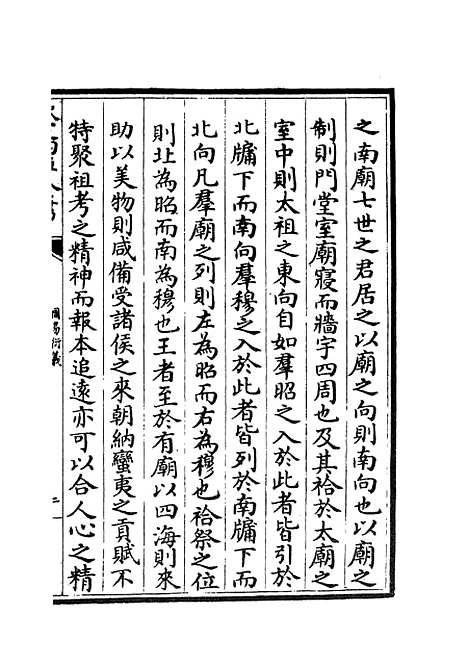 之南廟七世之君居之以廟之向則南向也以廟之
制則門堂室廟寢而牆宇四周也及其祫於太廟之
室中則太祖之東向自如羣昭之入於此者皆引於
北牖下而南向羣穆之入於此者皆列於南牖下而
北向凡羣廟之列則左為昭而右為穆也祫祭之位
則北為昭而南為穆也王者至於有廟以四海則來
助以美物則咸備受諸侯之來朝納蠻夷之貢賦不
特聚祖考之精神而報本追遠亦可以合人心之精
周易衍義